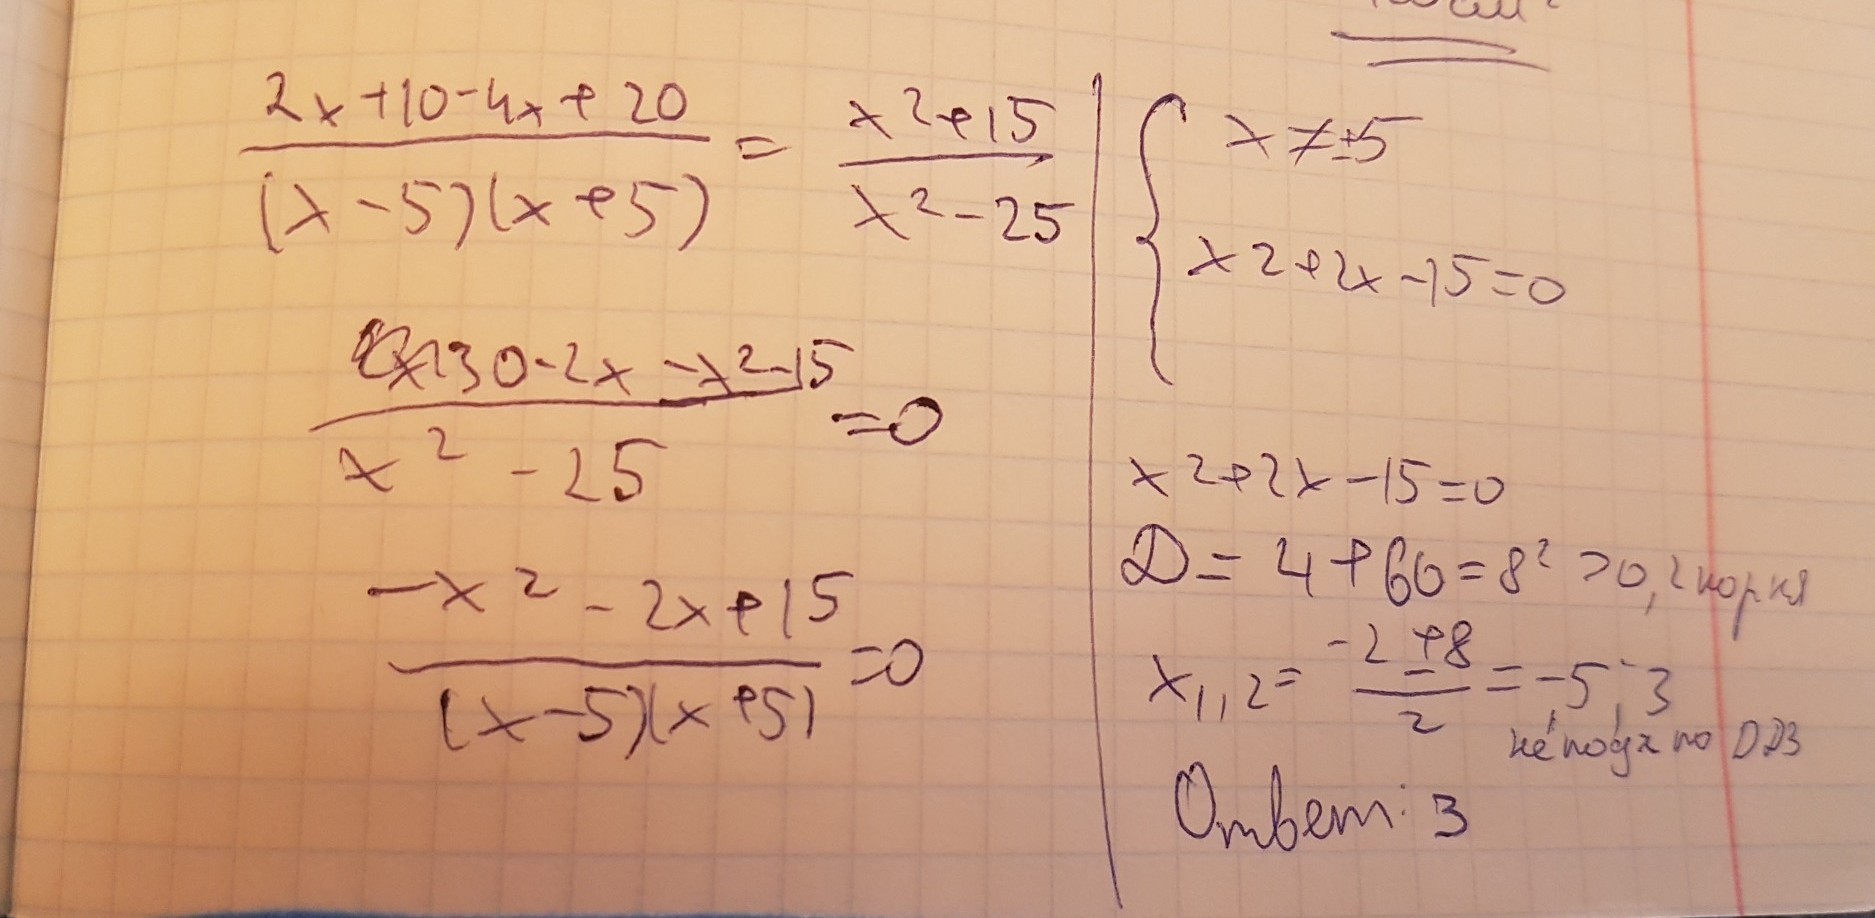 2x+10-4x+20 / (x-5)(x+5) = x²+15 / x²-25
30-2x-x²-15 / x²-25 =0
-x²-2x+15 / (x-5)(x+5) =0
{ x≠±5
x²+2x-15=0
x²+2x-15=0
D=4+60=8²>0, 2 корня
x1,2= -2±8 / 2 = -5; 3
не подх по ОДЗ
Ответ: 3